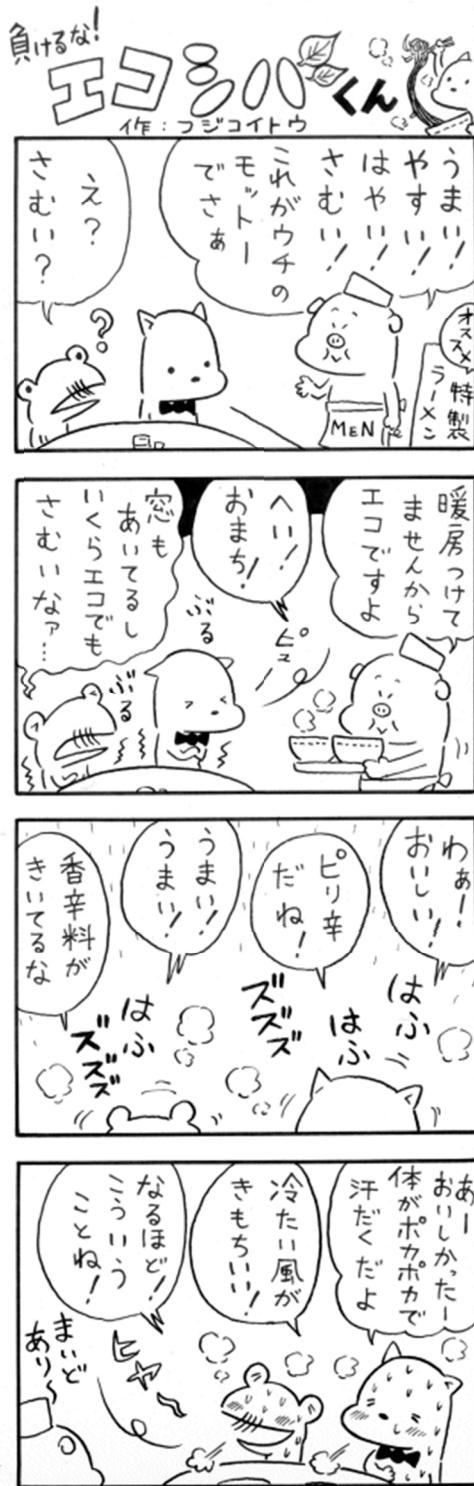 負けるな!
エコシバくん
作：フジコイトウ
うまい!
やすい!
はやい!
さむい!
これがウチの
モットー
でさぁ
え?
さむい?
オススメ
特製
ラーメン
MEN
暖房つけて
ませんから
エコですよ
へい!
おまち!
ピュー
窓も
あいてるし
いくらエコでも
さむいなァ…
ぶる
ぶる
わぁー
おいしい!
ピリ辛
だね!
うまい!
うまい!
香辛料が
きいてるな
はふ
はふ
ズズズ
はふ
ズズズ
あー
おいしかったー
体がポカポカで
汗だくだよ
冷たい風が
きもちいい!
なるほど!
こういう
ことね!
ヒヤ〜
まいど
あり〜